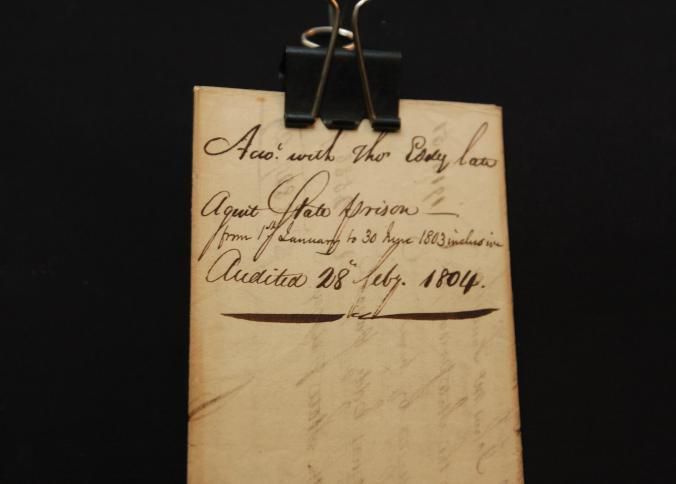 Acco.t with Thos Eddy late
Agent State prison —
from 1st January to 30 June 1803 inclusive
Audited 28th Feby. 1804.